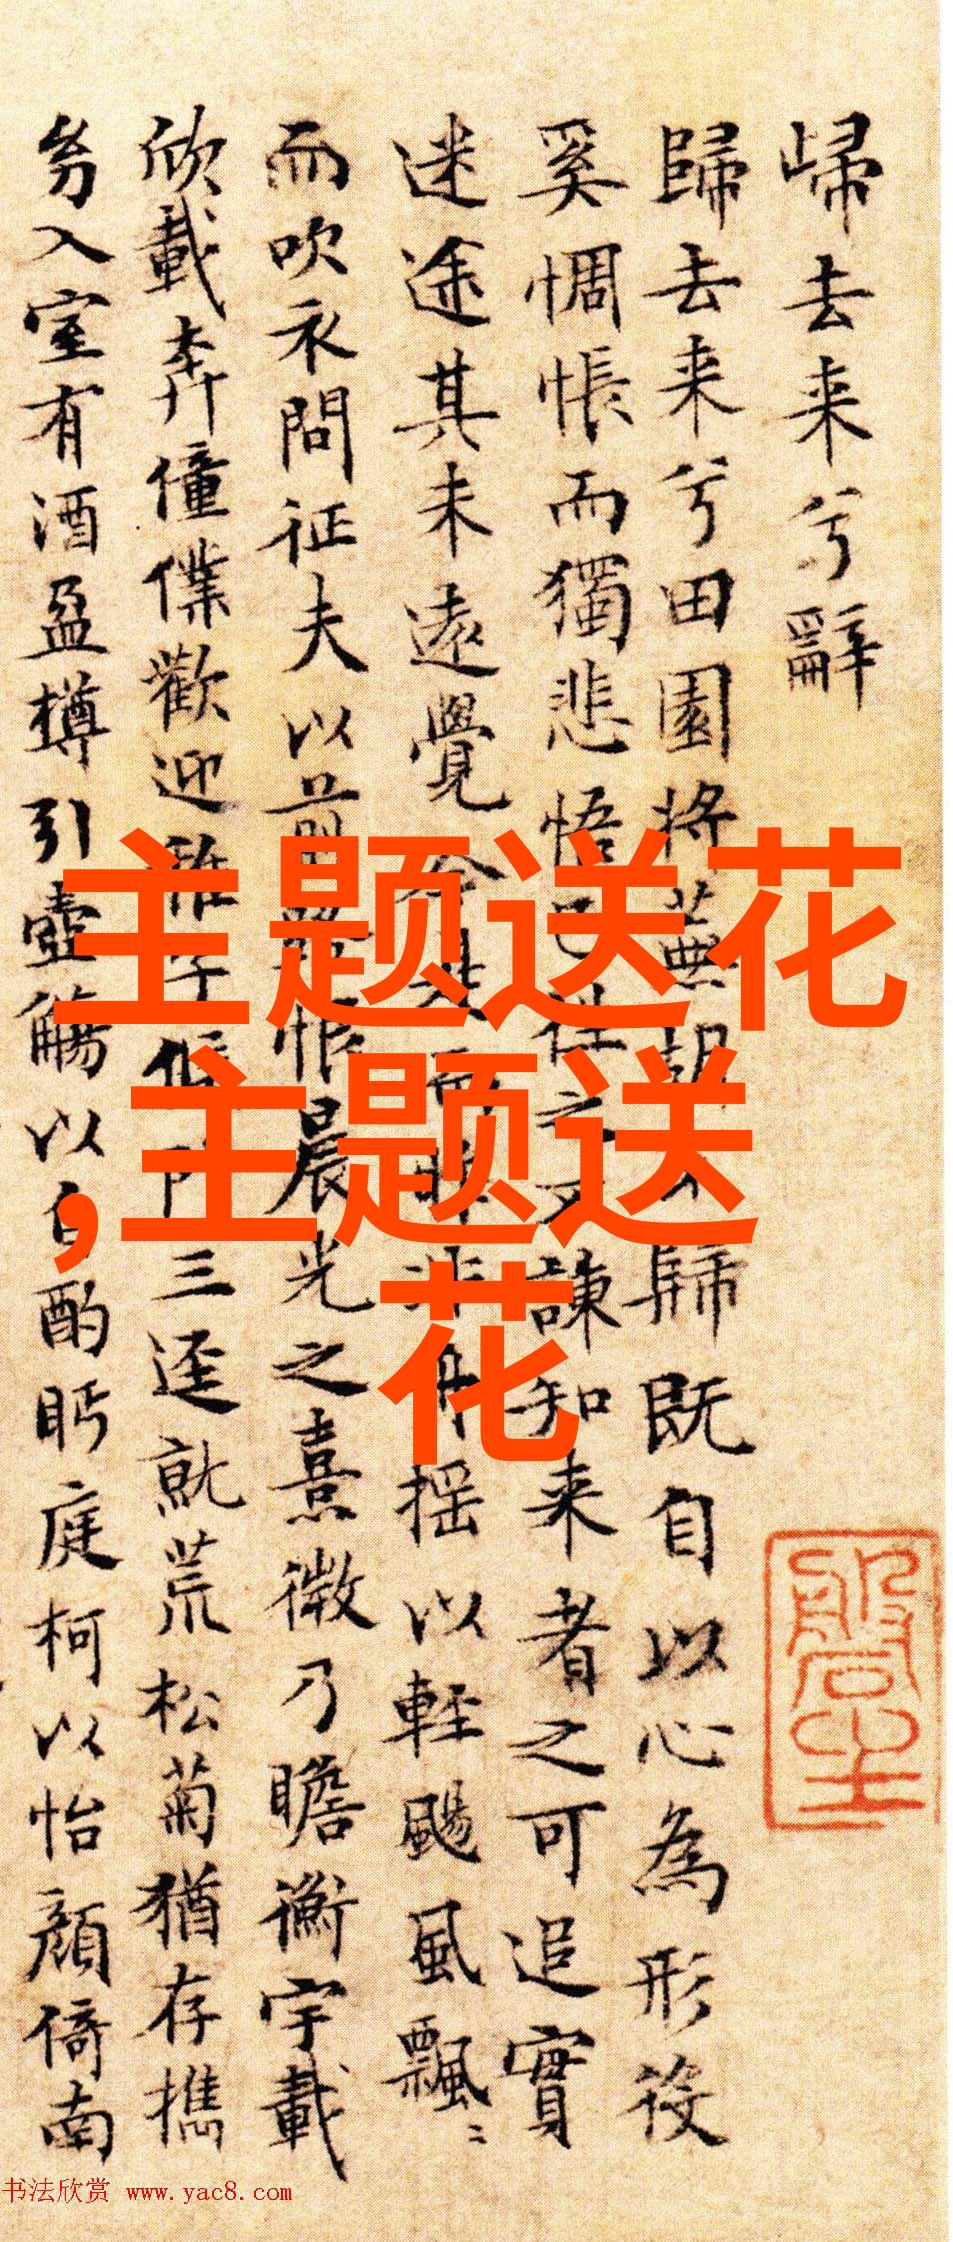 歸去来兮辭
歸去来兮田園将蕪胡不歸既自以心為形役
奚惆悵而獨悲悟已往之不諫知来者之可追實
迷途其未遠覺今是而昨非舟摇以輕颺風飄〻
而吹衣問征夫以前路恨晨光之熹微乃瞻衡宇載
欣載奔僮僕歡迎稚子候門三逕就荒松菊猶存携
幼入室有酒盈樽引壺觴以自酌眄庭柯以怡顏倚南
主题送花
,主题送
花
书法欣赏 www.yac8.com